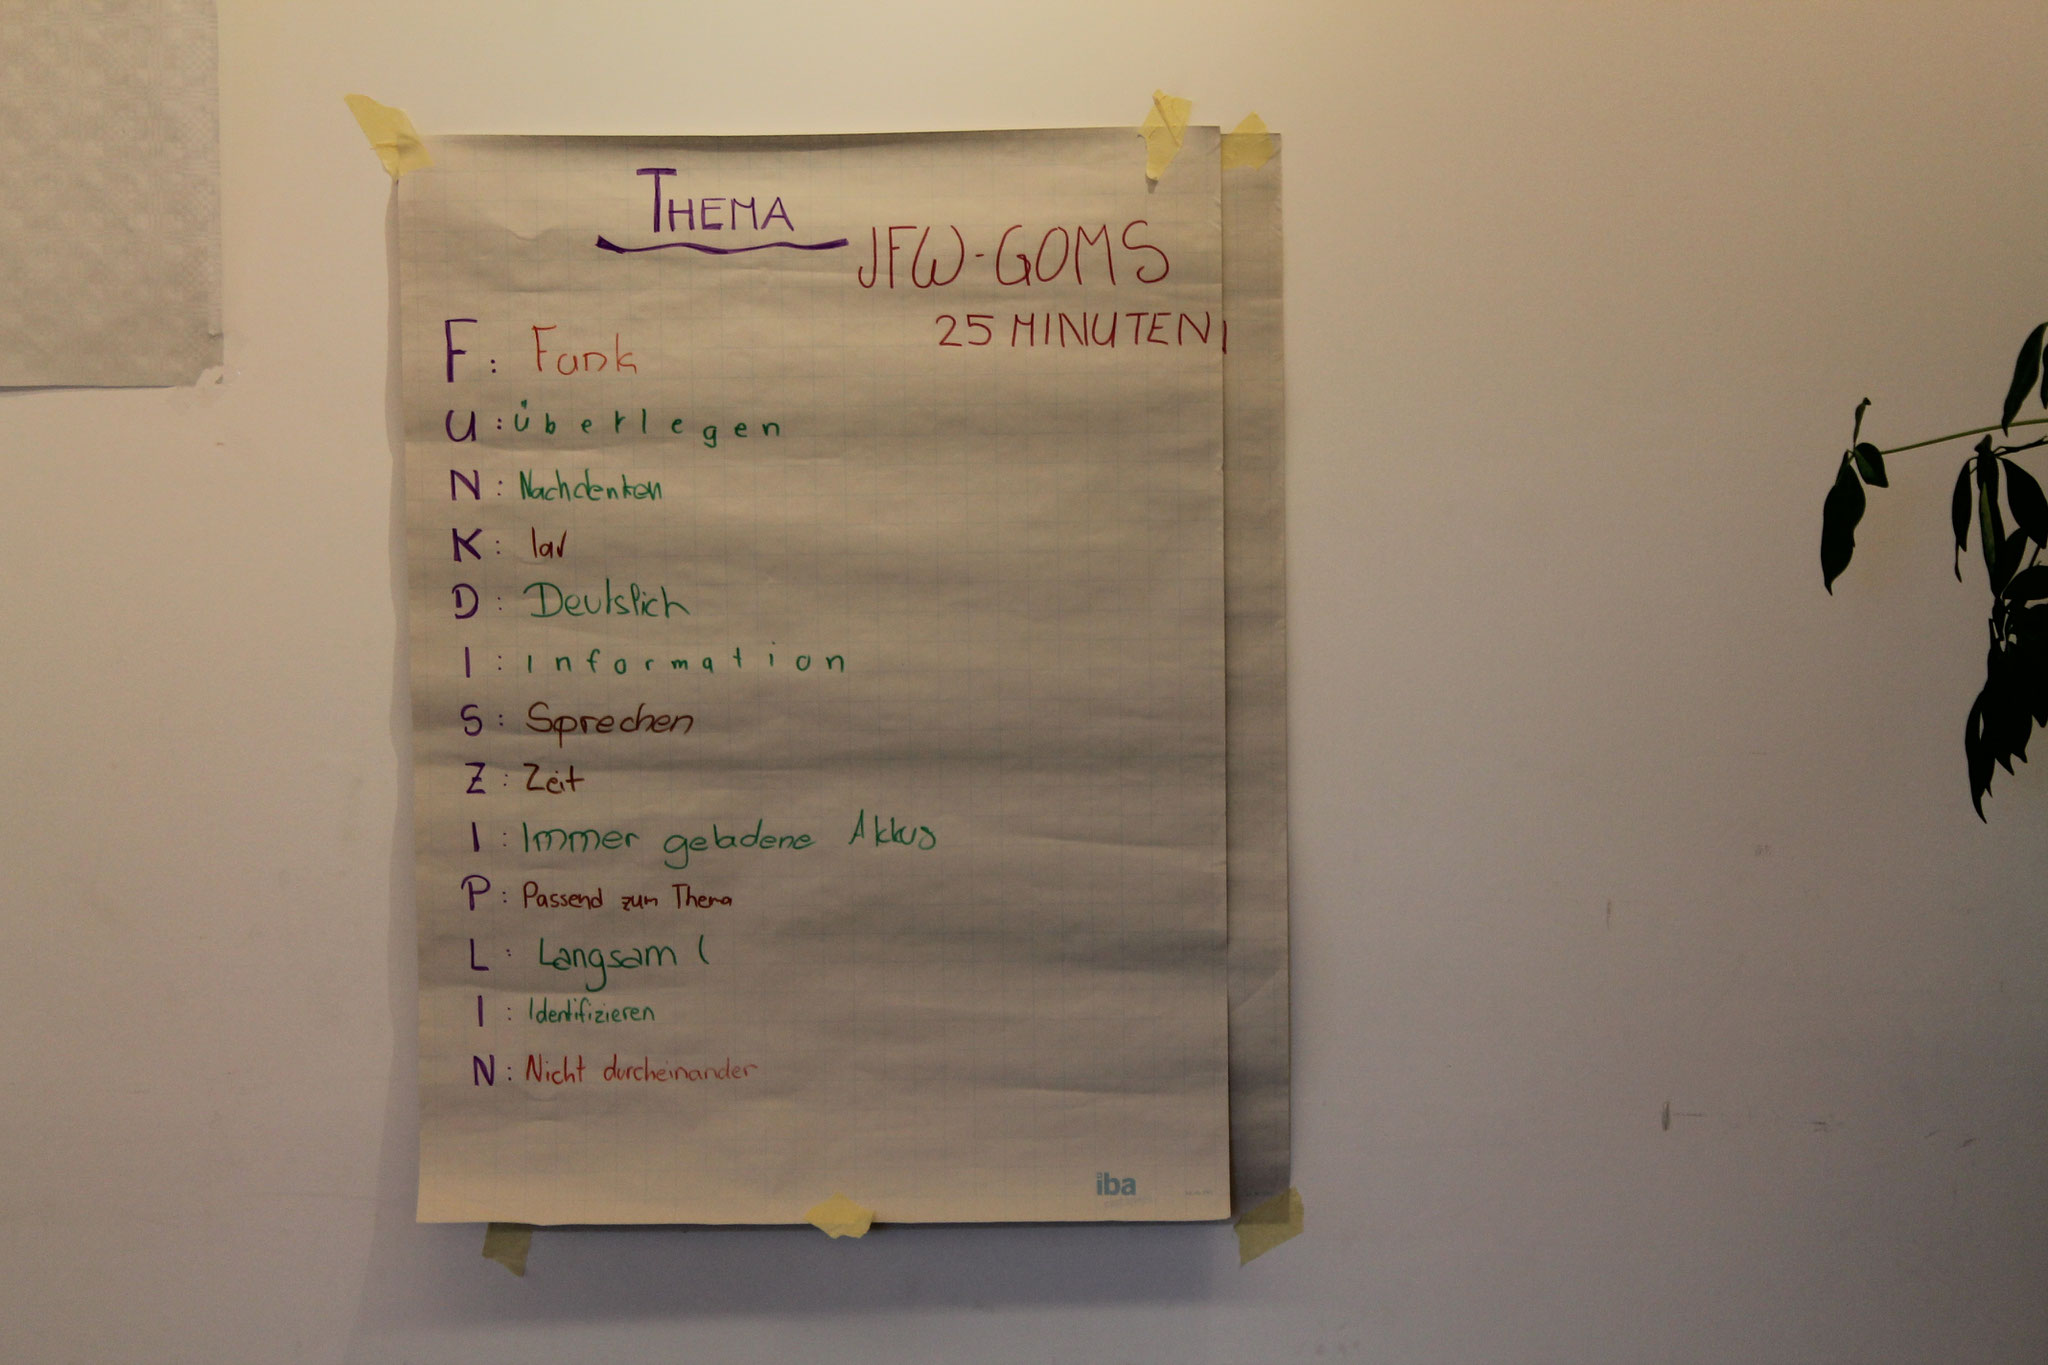 THEMA
JFW-GOMS
25 MINUTEN!
F: Funk
U: Überlegen
N: Nachdenken
K: lar
D: Deutslich
I: Information
S: Sprechen
Z: Zeit
I: Immer geladene Akkus
P: Passend zum Thema
L: Langsam (
I: Identifizieren
N: Nicht durcheinander
iba